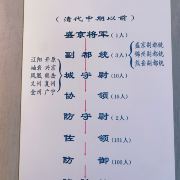 (清代中期以前)
盛京将军(1人)
副都统(3人)
盛京副都统
锦州副都统
熊岳副都统
城守尉(10人)
辽阳 开原
岫岩 兴京
凤凰
义州 复州
金州 广宁
协领(人)
防守尉(2人)
佐领(131人)
防御(100人)